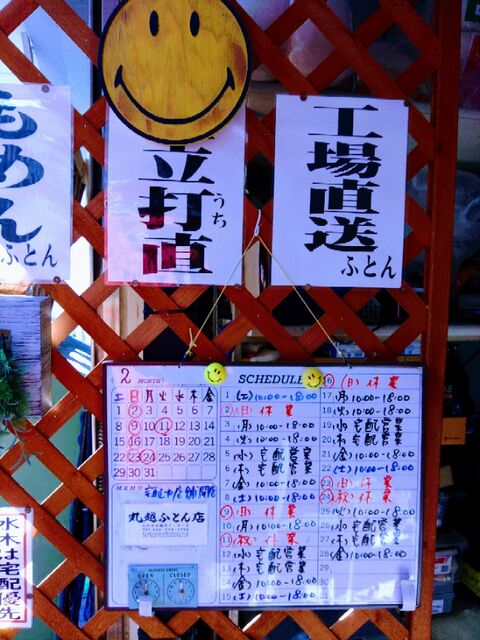 もめん
ふとん
立打直
うち
工場直送
ふとん
2 MONTH
土 日 月 火 水 木 金
1 2 3 4 5 6 7
8 9 10 11 12 13 14
15 16 17 18 19 20 21
22 23 24 25 26 27 28
29 30 31
MEMO 宅配中店舗閉店
丸越ふとん店
OPEN CLOSED
SCHEDULE
1 (土) 10:00-18:00
2 (日) 休業
3 (月) 10:00-18:00
4 (火) 10:00-18:00
5 (水) 宅配営業
6 (木) 宅配営業
7 (金) 10:00-18:00
8 (土) 10:00-18:00
9 (日) 休業
10 (月) 10:00-18:00
11 (祝) 休業
12 (水) 宅配営業
13 (木) 宅配営業
14 (金) 10:00-18:00
15 (土) 10:00-18:00
16 (日) 休業
17 (月) 10:00-18:00
18 (火) 10:00-18:00
19 (水) 宅配営業
20 (木) 宅配営業
21 (金) 10:00-18:00
22 (土) 10:00-18:00
23 (日) 休業
24 (祝) 休業
25 (火) 10:00-18:00
26 (水) 宅配営業
27 (木) 宅配営業
28 (金) 10:00-18:00
29
30
31
水木は宅配優先